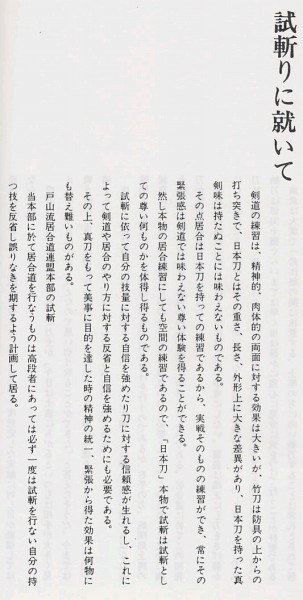 試斬りに就いて
剣道の練習は、精神的、肉体的の両面に対する効果は大きいが、竹刀は防具の上からの
打ち突きで、日本刀とはその重さ、長さ、外形上に大きな差異があり、日本刀を持った真
剣味は持たぬことには味わえないものである。
その点居合は日本刀を持っての練習であるから、実戦そのものの練習ができ、常にその
緊張感は剣道では味わえない尊い体験を得ることができる。
然し本物の居合練習にしても空間の練習であるので、「日本刀」本物で試斬は試斬とし
ての尊い何ものかを体得し得るものである。
試斬に依って自分の技量に対する自信を強めたり刀に対する信頼感が生れるし、これに
よって剣道や居合のやり方に対する反省と自信を強めるためにも必要である。
その上、真刀をもって美事に目的を達した時の精神の統一、緊張から得た効果は何物に
も替え難いものがある。
戸山流居合道連盟本部の試斬
当本部に於て居合道を行なうものは高段者にあっては必ず一度は試斬を行ない自分の持
つ技を反省し誤りなきを期するよう計画して居る。